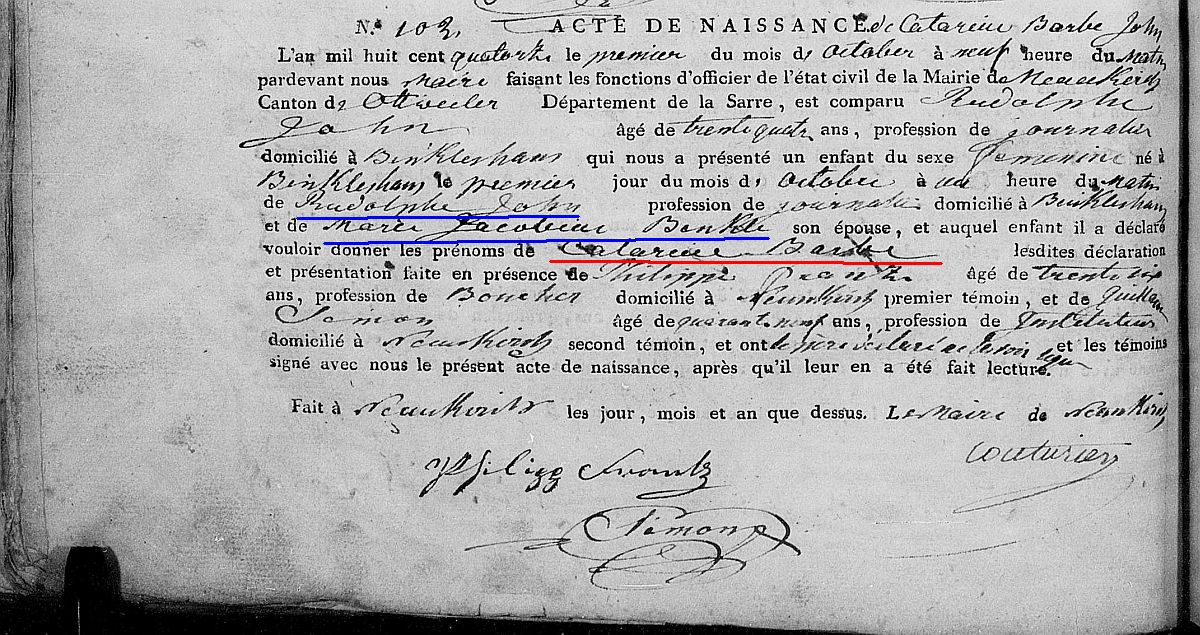 N.º 103. ACTE DE NAISSANCE de Catareine Barbe John
L'an mil huit cent quatorze le premier du mois d' october à neuf heure du Matin
pardevant nous maire faisant les fonctions d'officier de l'état civil de la Mairie de Neunkirch
Canton de Ottweiler Département de la Sarre, est comparu Rudolphe
John âgé de trentequatre ans, profession de journalier
domicilié à Binkleshaus qui nous a présenté un enfant du sexe femenine né à
Binkleshaus le premier jour du mois d' octobre à un heure du Matin
de Rudolphe John profession de journalie domicilié à Binkleshaus
et de Marie Jacobine Benkle son épouse, et auquel enfant il a déclaré
vouloir donner les prénoms de Catareine Barbe lesdites déclaration
et présentation faite en présence de Philippe Frantz âgé de trente six
ans, profession de Boucher domicilié à Neunkirch premier témoin, et de Guillaume
Simon âgé de quarante neuf ans, profession de Instituteur
domicilié à Neunkirch second témoin, et ont le père declaré ne savoir signer et les témoins
signé avec nous le présent acte de naissance, après qu'il leur en a été fait lecture.
Fait à Neunkirch les jour, mois et an que dessus. Le Maire de Neunkirch
Couturier
Philipp Frantz
Simon